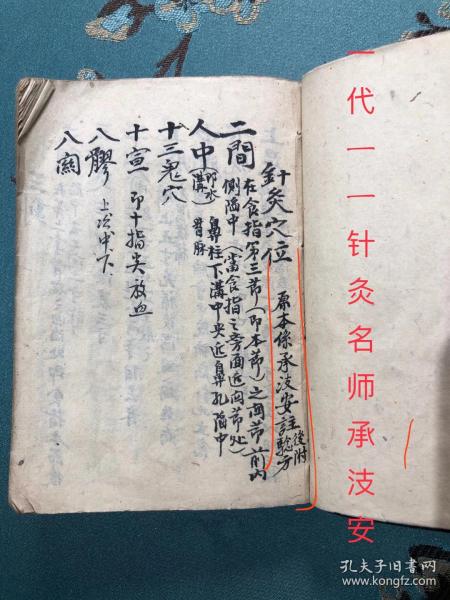 針灸穴位 原本係承淡安註 後附驗方
二間 在食指第三節(即本節)之両節前内
側陷中(當食指之旁面近両節处)
人中(即水溝) 鼻柱下溝中央近鼻孔陷中
督脉
十三鬼穴
十宣 即十指尖放血
八髎 上次中下
八
一代一一针灸名师承淡安
孔夫子旧书网
www.kongfz.com